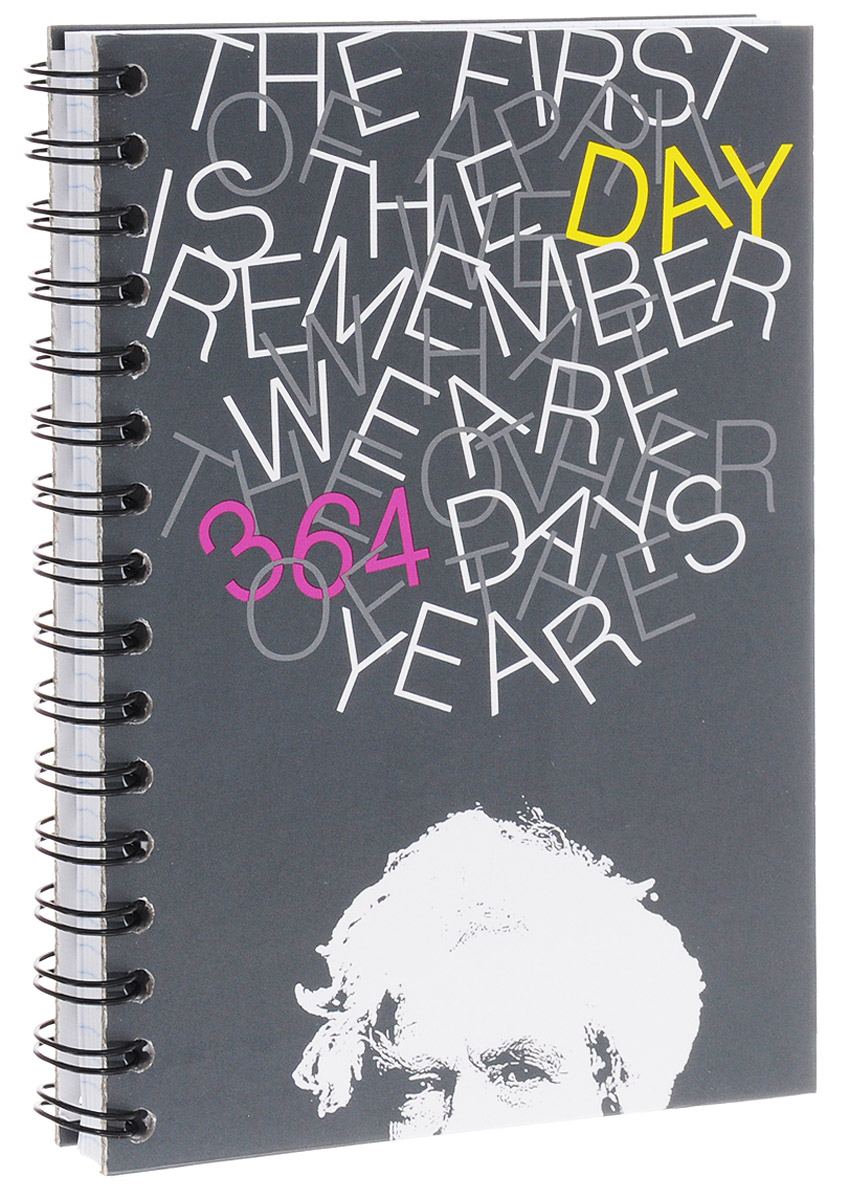 THE FIRST
OF APRIL
IS THE DAY
WE
REMEMBER
WHAT
WE ARE
THE OTHER
364 DAYS
OF THE
YEAR